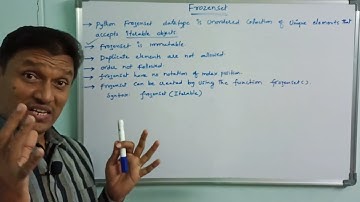 Frozenset
→ Python Frozenset datatype is unordered collection of unique elements that
accepts iterable objects.
→ Frozenset is immutable
→ Duplicate elements are not allowed.
→ Order not followed.
→ frozenset have no notation of index position.
→ Frozenset can be created by using the function frozenset().
Syntax: frozenset(Iterable)